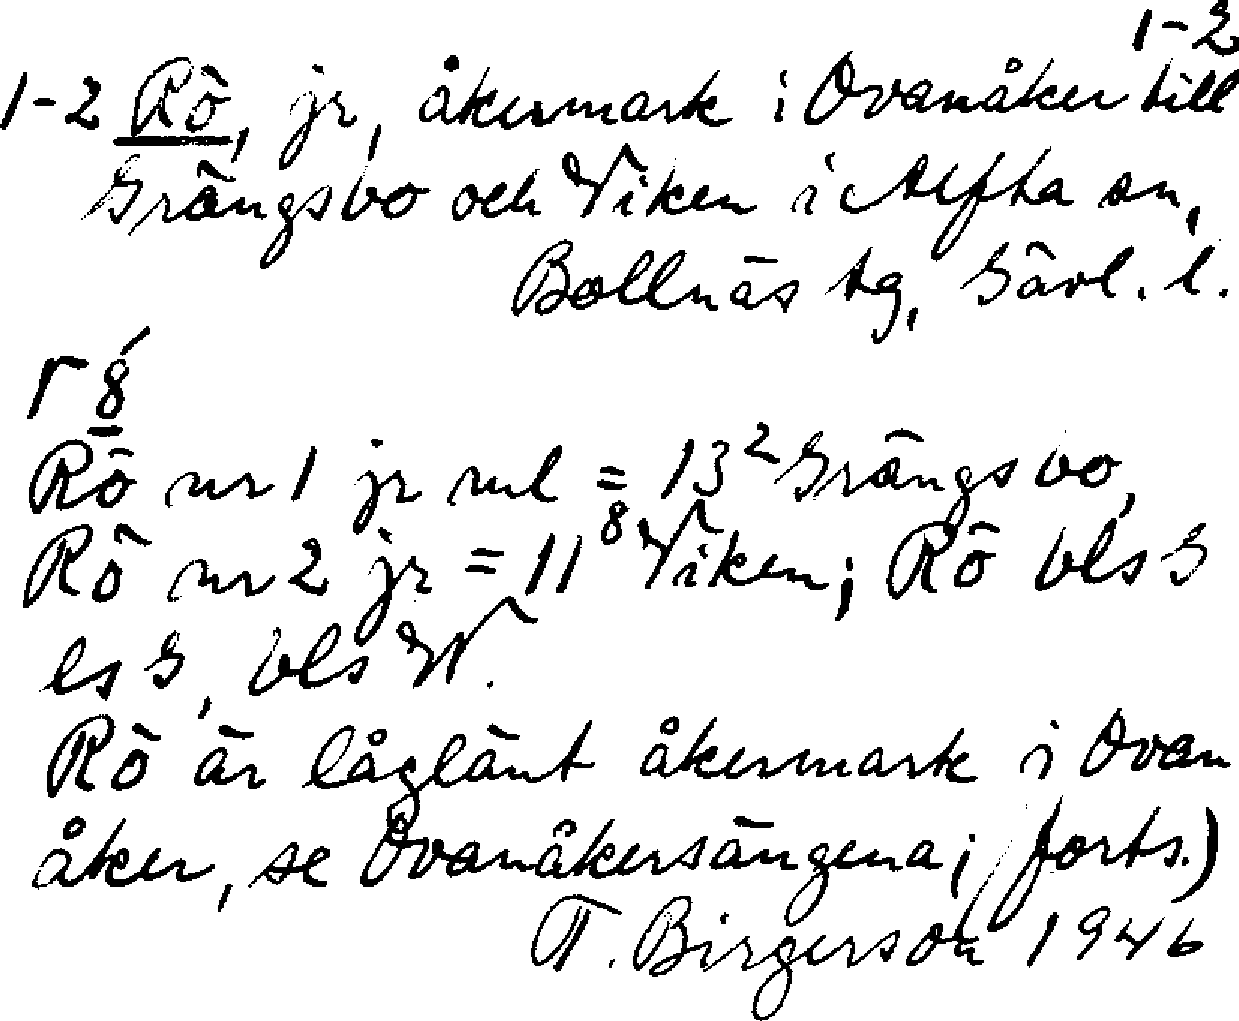 1-2
1-2 Rö, jr, åkermark i Ovanåker till
Grängsbo och Viken i Alfta sn,
Bollnäs tg, Gävl. l.
r ǿ
Rö nr 1 jr ml = 13² Grängsbo,
Rö nr 2 jr = 11⁸ Viken; Rö bls G
ls G, bls W.
Rö är låglänt åkermark i Ovan
åker, se Ovanåkersängena; (forts.)
T. Birgerson 1946